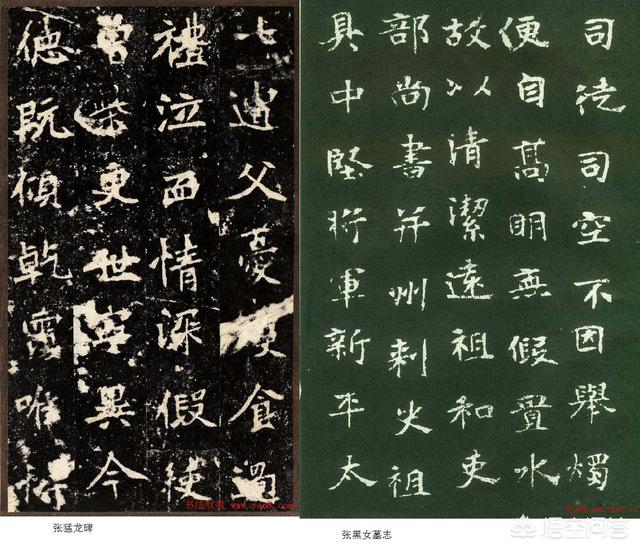 七遭父憂食過
禮泣血情深假使
曾柴更世寧異今
德既傾乾覆唯恃
张猛龙碑
司徒司空不因舉燭
便自高明無假置水
故以清潔遠祖和吏
部尚書并州刺史祖
具中堅將軍新平太
张黑女墓志
悟空问答